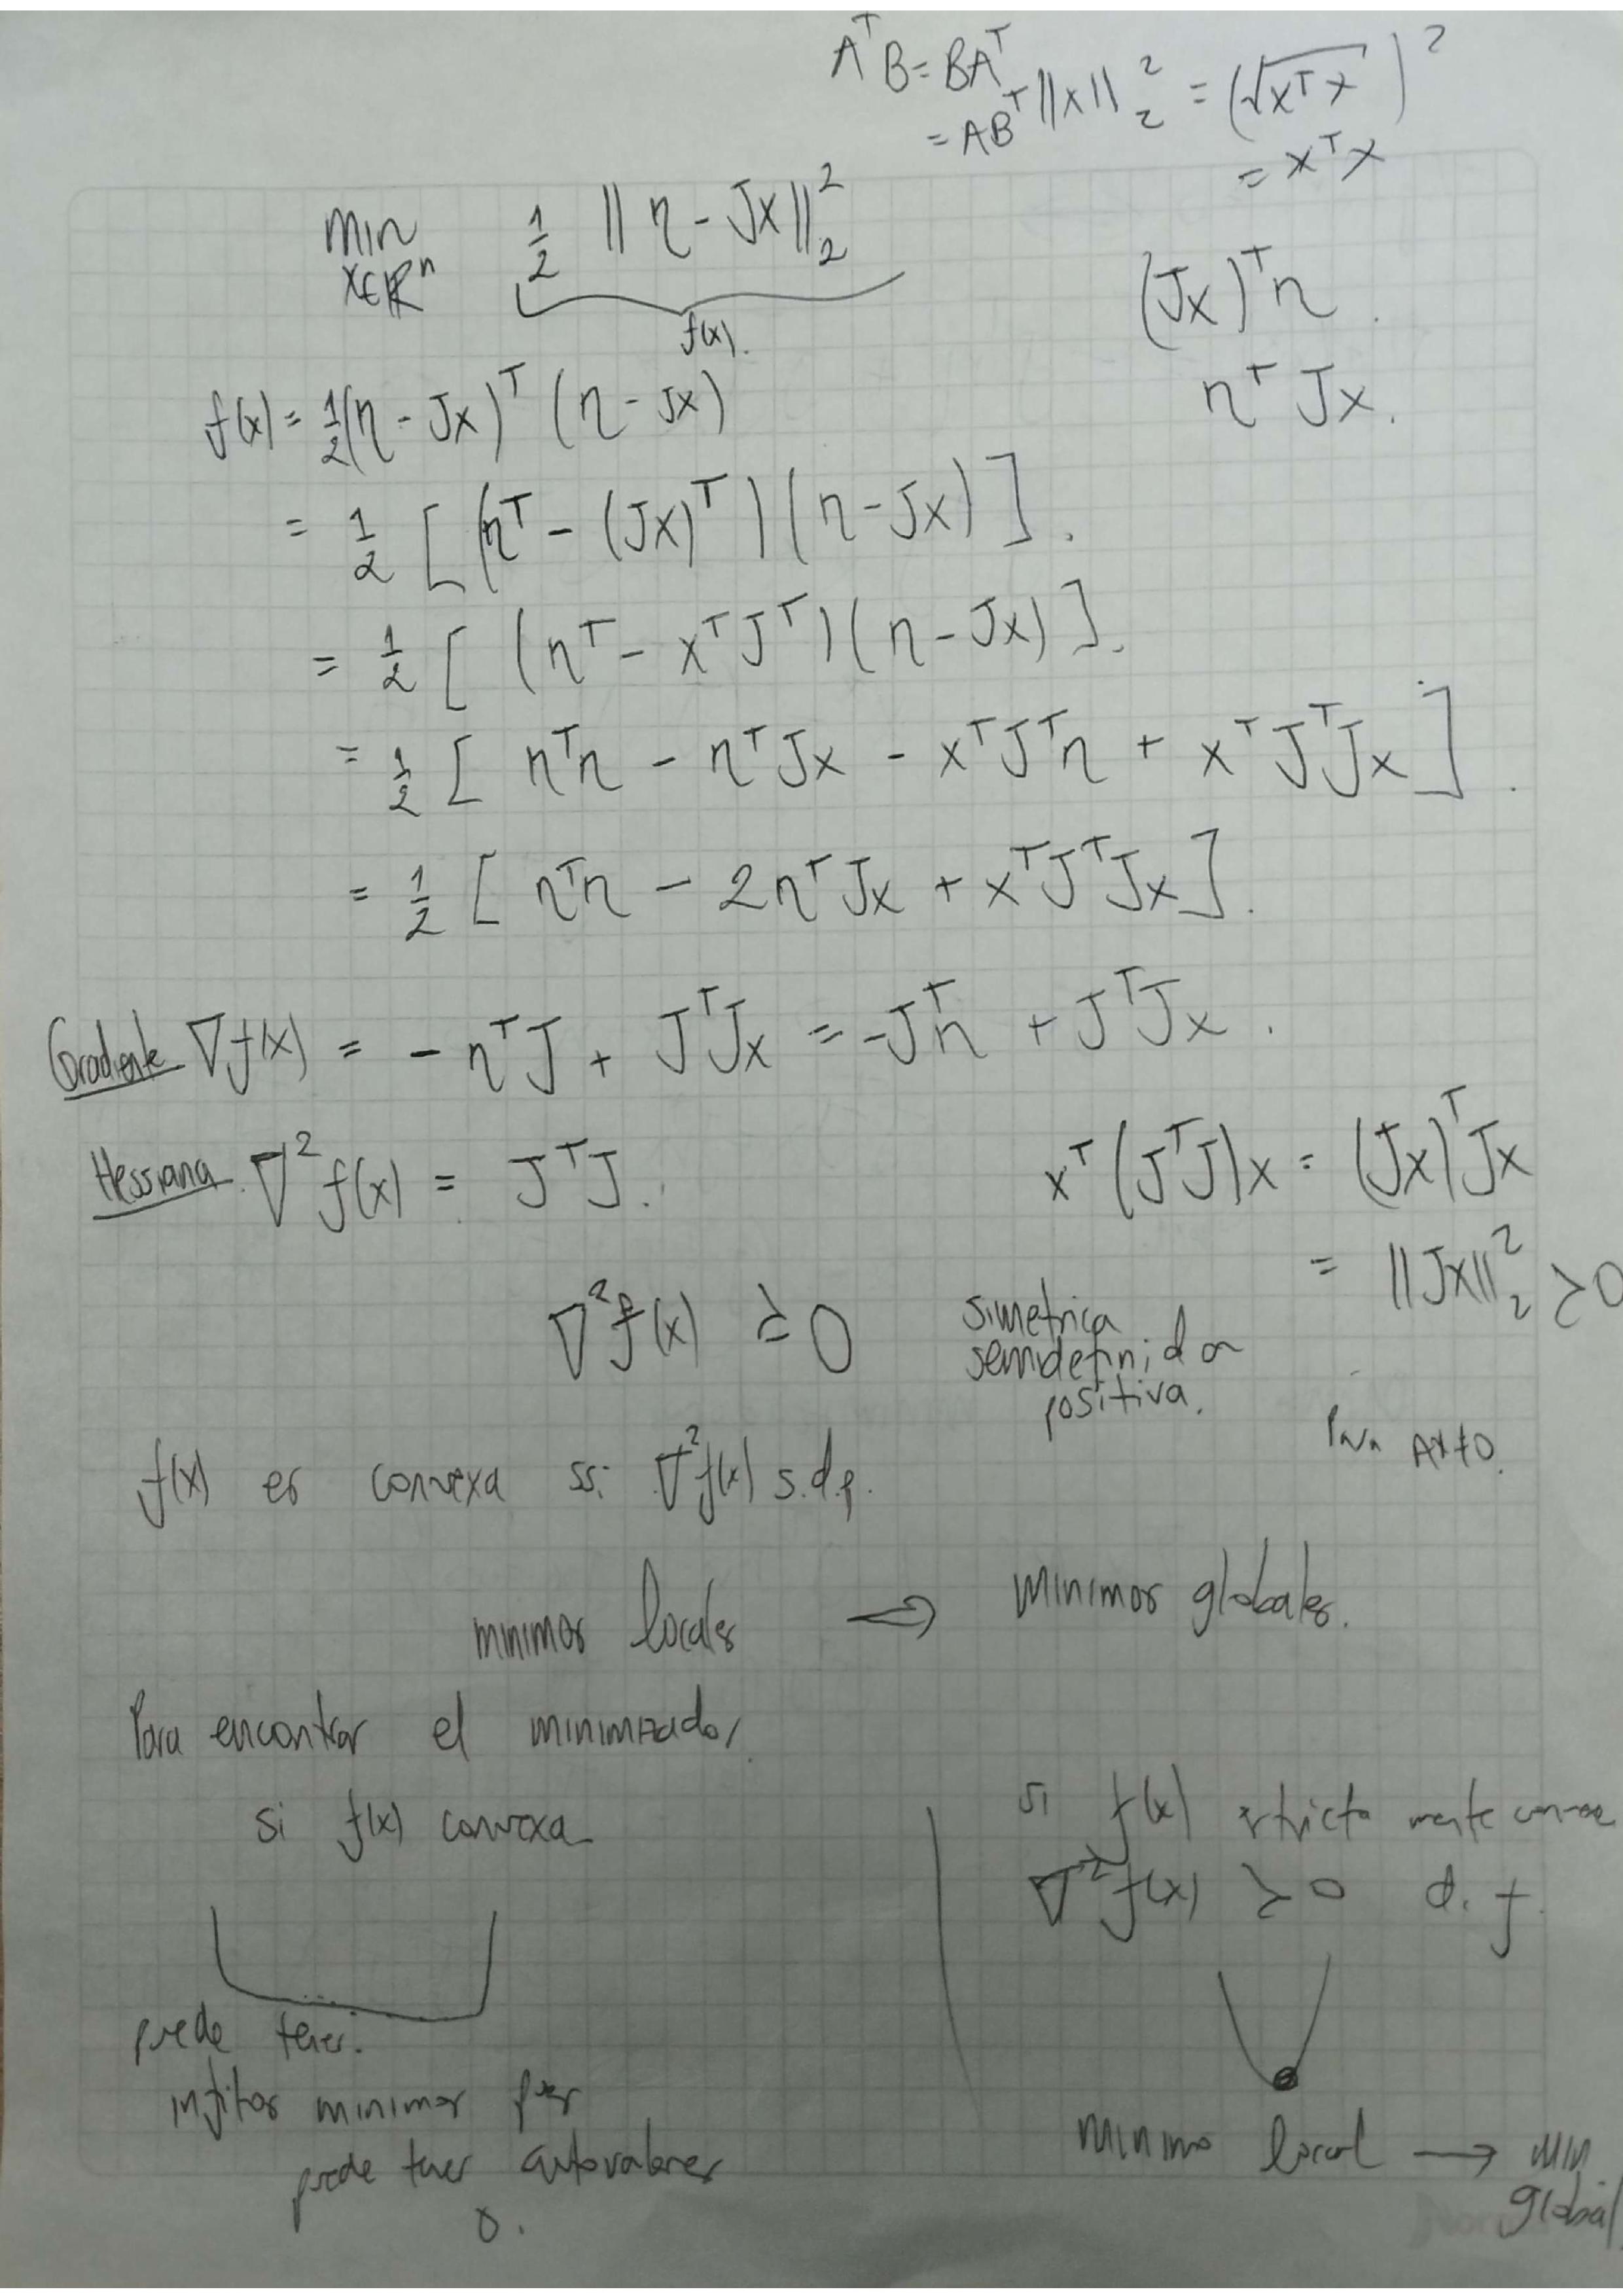 AᵀB = BAᵀ
= ABᵀ
||x||₂² = (√xᵀx)²
= xᵀx
min x∈ℝⁿ ½ ||η - Jx||₂²
f(x).
(Jx)ᵀη.
ηᵀJx.
f(x) = ½(η - Jx)ᵀ(η - Jx)
= ½ [(ηᵀ - (Jx)ᵀ)(η - Jx)].
= ½ [(ηᵀ - xᵀJᵀ)(η - Jx)].
= ½ [ηᵀη - ηᵀJx - xᵀJᵀη + xᵀJᵀJx].
= ½ [ηᵀη - 2ηᵀJx + xᵀJᵀJx].
Gradiente ∇f(x) = -ηᵀJ + JᵀJx = -Jᵀη + JᵀJx.
Hessiana. ∇²f(x) = JᵀJ.
xᵀ(JᵀJ)x = (Jx)ᵀJx
= ||Jx||₂² ≥0
∇²f(x) ≽ 0
simetrica
semidefinida
positiva.
Para Ax≠0.
f(x) es convexa ssi ∇²f(x) s.d.p.
minimos locales → minimos globales.
Para encontrar el minimizador
si f(x) convexa
si f(x) strictamente convexa
∇²f(x) ≻0 d.p.
puede tener.
infitos minimos pues
puede tener autovalores
0.
minimo local → min
global